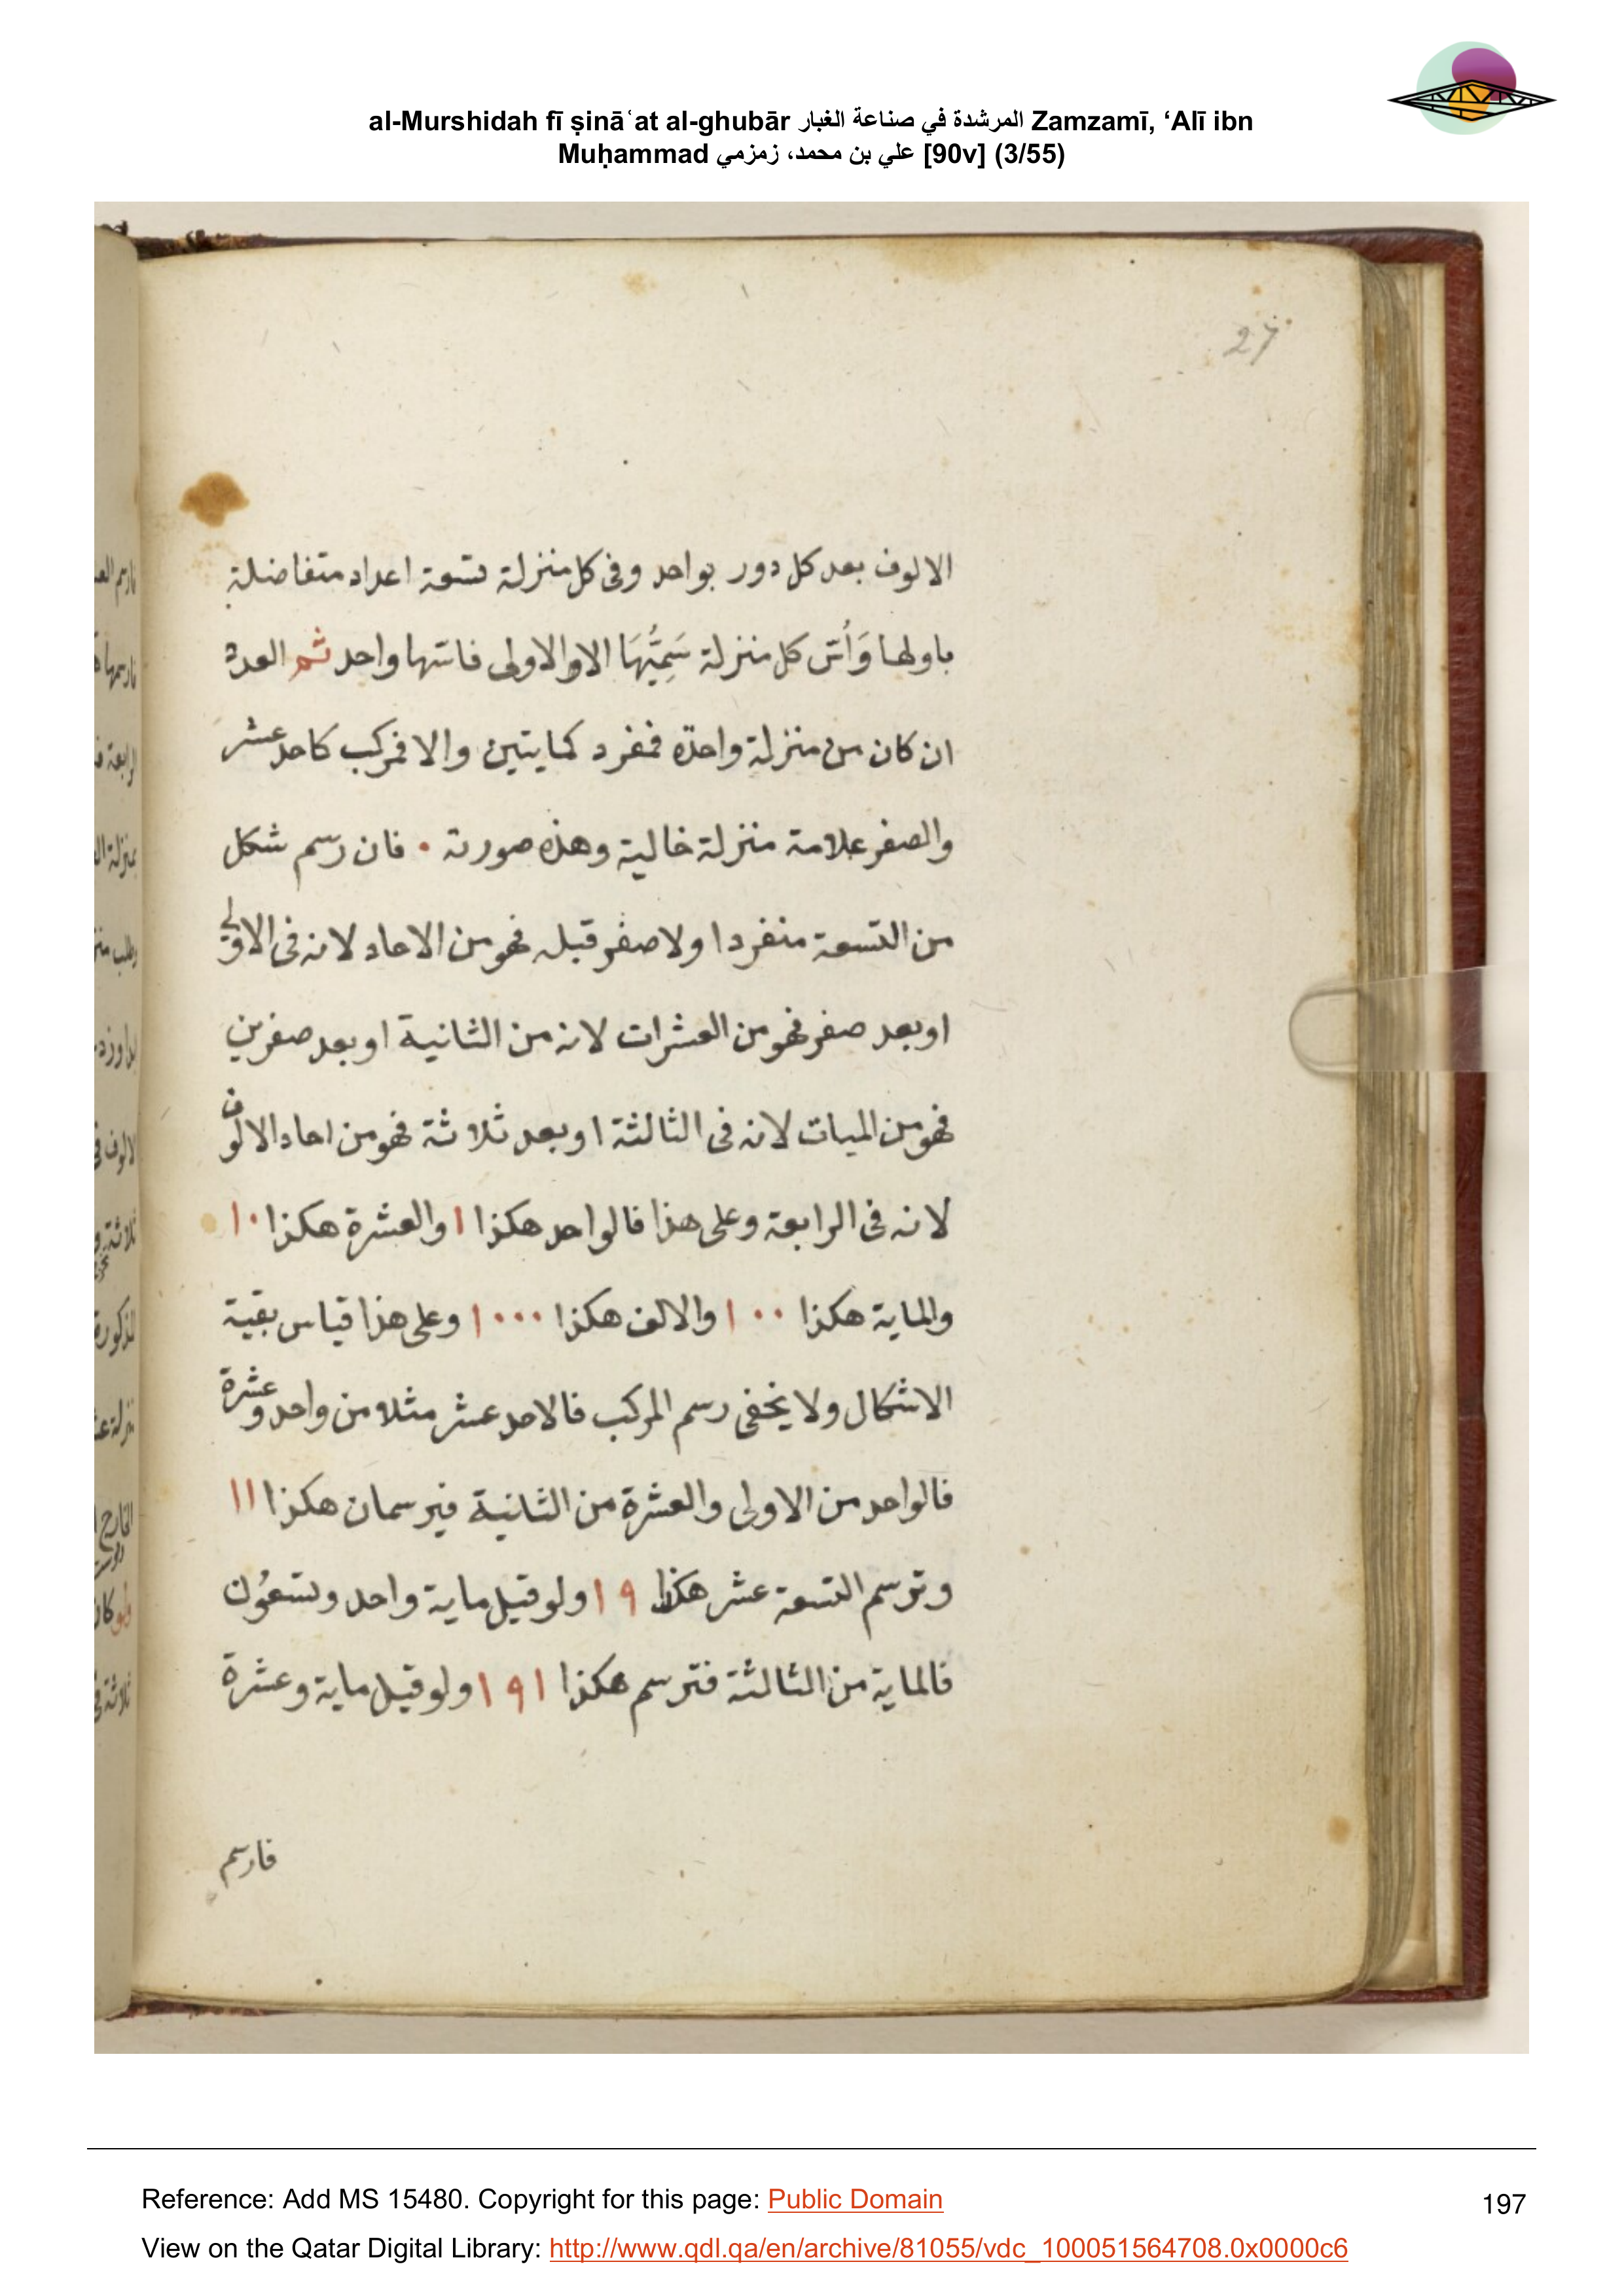 al-Murshidah fī ṣināʿat al-ghubār المرشدة في صناعة الغبار Zamzamī, ‘Alī ibn
Muḥammad علي بن محمد، زمزمي [90v] (3/55)
27
الالوف بعد كل دور بواحد وفى كل منزلة تسعة اعداد متفاضلة
باولها وَأُسّ كل منزلة سَمِيُّهَا الا الاولى فاسّها واحد ثم العدد
ان كان من منزلة واحدة فمفرد كمايتين والا فمركب كاحد عشر
والصفر علامة منزلة خالية وهذه صورته ٠ فان رسم شكل
من التسعة منفردا ولا صفر قبله فهو من الاحاد لانه فى الاولى
او بعد صفر فهو من العشرات لانه من الثانية او بعد صفرين
فهو من الميات لانه فى الثالثة او بعد ثلاثة فهو من احاد الالوف
لانه فى الرابعة وعلى هذا فالواحد هكذا ١ والعشرة هكذا ١٠
والماية هكذا ١٠٠ والالف هكذا ١٠٠٠ وعلى هذا قياس بقية
الاشكال ولا يخفى رسم المركب فالاحد عشر مثلا من واحد وعشرة
فالواحد من الاولى والعشرة من الثانية فيرسمان هكذا ١١
وترسم التسعة عشر هكذا ١٩ ولو قيل ماية واحد وتسعُون
فالماية من الثالثة فترسم هكذا ١٩١ ولو قيل ماية وعشرة
فارسم
Reference: Add MS 15480. Copyright for this page: Public Domain
197
View on the Qatar Digital Library: http://www.qdl.qa/en/archive/81055/vdc_100051564708.0x0000c6